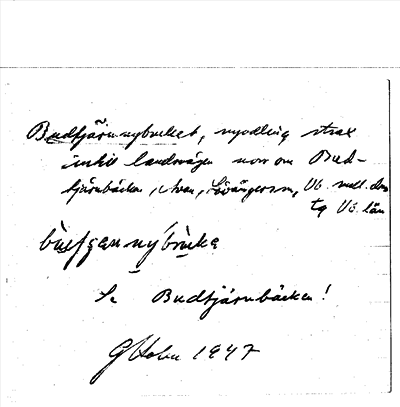 Budtjärnnybruket, nyodling strax
intill landsvägen norr om Bud-
tjärnbäcken, Lövångersm, Vb. mell. den
tq Vb. län
bùǝʃʒannýbrùka
Se Budtjärnbäcken!
G Holm 1947